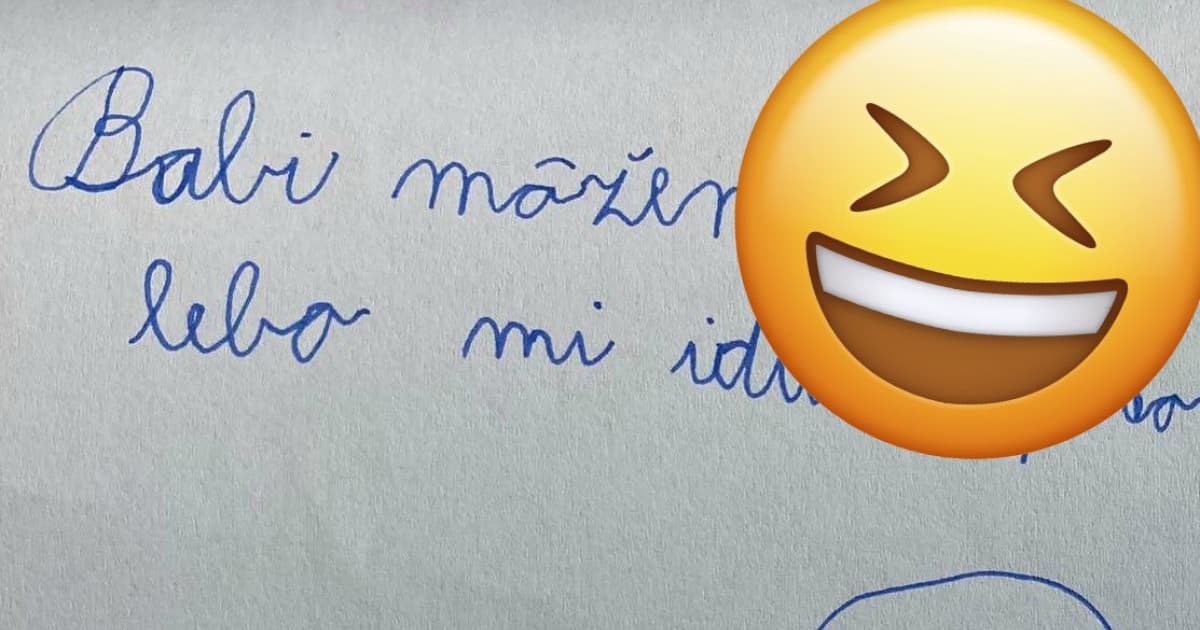 Babi môžem
lebo mi idú